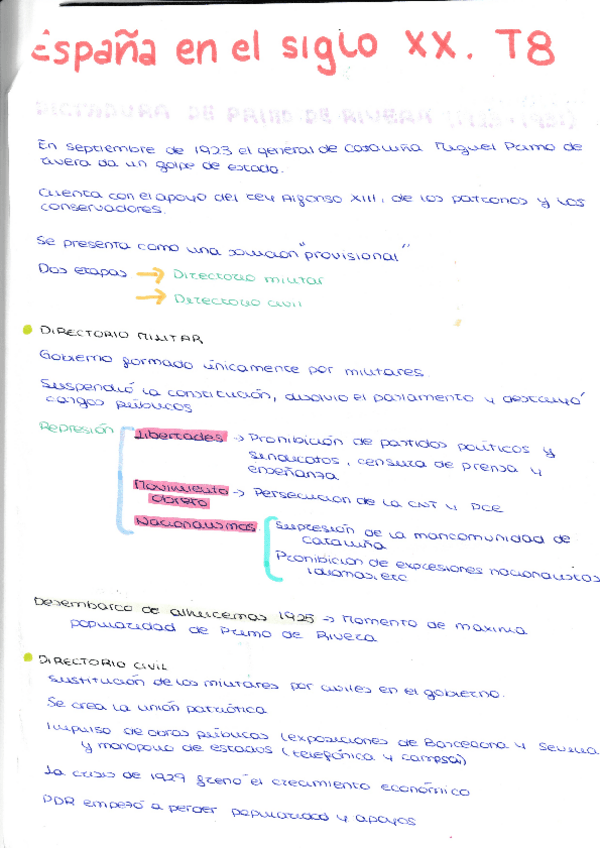 España en el siglo XX. T8
DICTADURA DE PRIMO DE RIVERA (1923-1931)
En septiembre de 1923 el general de Cataluña Miguel Primo de
Rivera da un golpe de estado.
Cuenta con el apoyo del rey Alfonso XIII, de los patronos y los
conservadores.
Se presenta como una solución "provisional"
Dos etapas → Directorio militar
→ Directorio civil
• DIRECTORIO MILITAR
Gobierno formado únicamente por militares
Suspendió la constitución, disolvió el parlamento y destituyó
cargos públicos
Represión
libertades → Prohibición de partidos políticos y
sindicatos, censura de prensa y
enseñanza
Movimiento
obrero → Persecución de la CNT y PCE
Nacionalismos
Supresión de la mancomunidad de
cataluña
Prohibición de expresiones nacionalistas
idiomas, etc
Desembarco de alhucemas 1925 → Momento de maxima
popularidad de Primo de Rivera
• DIRECTORIO CIVIL
Sustitución de los militares por civiles en el gobierno.
Se crea la unión patriótica
Impulso de obras públicas (exposiciones de Barcelona y Sevilla
y monopolio de estados (telefónica y campsa)
La crisis de 1929 frenó el crecimiento económico
PDR empezó a perder popularidad y apoyos